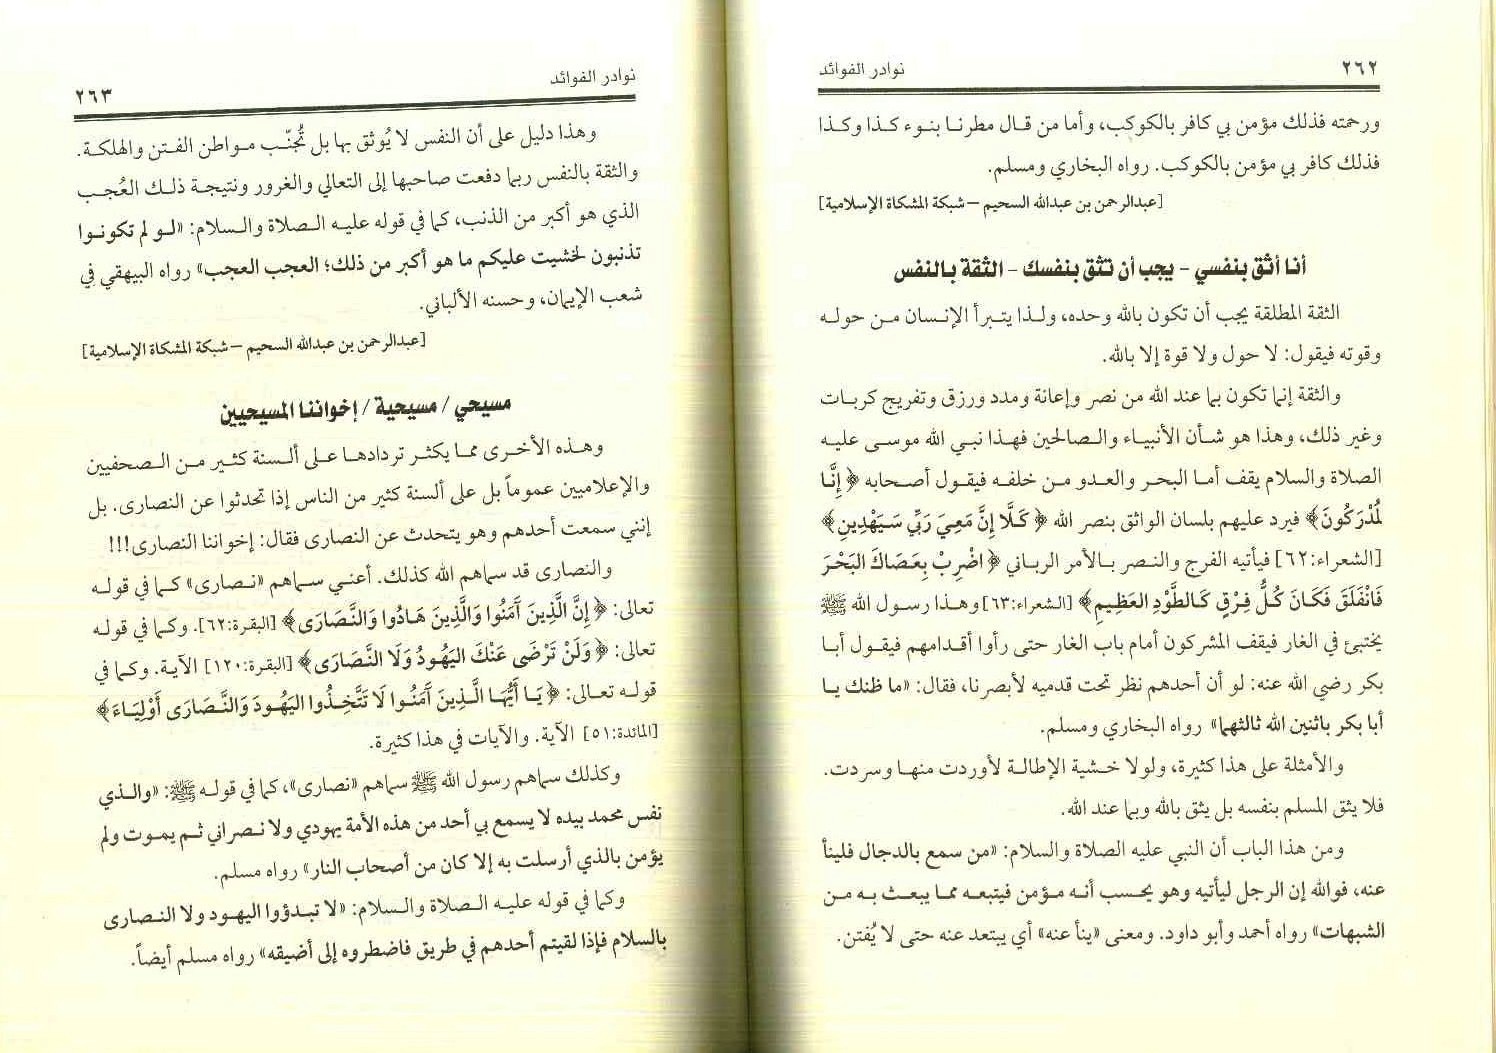 ٢٦٢ نوادر الفوائد
ورحمته فذلك مؤمن بي كافر بالكوكب، وأما من قال مطرنا بنوء كذا وكذا
فذلك كافر بي مؤمن بالكوكب. رواه البخاري ومسلم.
[عبدالرحمن بن عبدالله السحيم – شبكة المشكاة الإسلامية]
أنا أثق بنفسي - يجب أن تثق بنفسك - الثقة بالنفس
الثقة المطلقة يجب أن تكون بالله وحده، ولذا يتبرأ الإنسان من حوله
وقوته فيقول: لا حول ولا قوة إلا بالله.
والثقة إنما تكون بما عند الله من نصر وإعانة ومدد ورزق وتفريج كربات
وغير ذلك، وهذا هو شأن الأنبياء والصالحين فهذا نبي الله موسى عليه
الصلاة والسلام يقف أما البحر والعدو من خلفه فيقول أصحابه ﴿إِنَّا
لَمُدْرَكُونَ﴾ فيرد عليهم بلسان الواثق بنصر الله ﴿كَلَّا إِنَّ مَعِيَ رَبِّي سَيَهْدِينِ﴾
[الشعراء:٦٢] فيأتيه الفرج والنصر بالأمر الرباني ﴿اضْرِبْ بِعَصَاكَ البَحْرَ
فَانْفَلَقَ فَكَانَ كُلُّ فِرْقٍ كَالطَّوْدِ العَظِيمِ﴾ [الشعراء:٦٣] وهذا رسول الله ﷺ
يختبئ في الغار فيقف المشركون أمام باب الغار حتى رأوا أقدامهم فيقول أبا
بكر رضي الله عنه: لو أن أحدهم نظر تحت قدميه لأبصرنا، فقال: «ما ظنك يا
أبا بكر باثنين الله ثالثهما» رواه البخاري ومسلم.
والأمثلة على هذا كثيرة، ولولا خشية الإطالة لأوردت منها وسردت.
فلا يثق المسلم بنفسه بل يثق بالله وبما عند الله.
ومن هذا الباب أن النبي عليه الصلاة والسلام: «من سمع بالدجال فلينأ
عنه، فوالله إن الرجل ليأتيه وهو يحسب أنه مؤمن فيتبعه مما يبعث به من
الشبهات» رواه أحمد وأبو داود. ومعنى «ينأ عنه» أي يبتعد عنه حتى لا يُفتن.
نوادر الفوائد ٢٦٣
وهذا دليل على أن النفس لا يُوثق بها بل تُجنّب مواطن الفتن والهلكة.
والثقة بالنفس ربما دفعت صاحبها إلى التعالي والغرور ونتيجة ذلك العُجب
الذي هو أكبر من الذنب، كما في قوله عليه الصلاة والسلام: «لو لم تكونوا
تذنبون لخشيت عليكم ما هو أكبر من ذلك؛ العجب العجب» رواه البيهقي في
شعب الإيمان، وحسنه الألباني.
[عبدالرحمن بن عبدالله السحيم – شبكة المشكاة الإسلامية]
مسيحي / مسيحية / إخواننا المسيحيين
وهذه الأخرى مما يكثر تردادها على ألسنة كثير من الصحفيين
والإعلاميين عموماً بل على ألسنة كثير من الناس إذا تحدثوا عن النصارى. بل
إنني سمعت أحدهم وهو يتحدث عن النصارى فقال: إخواننا النصارى!!!
والنصارى قد سماهم الله كذلك. أعني سماهم «نصارى» كما في قوله
تعالى: ﴿إِنَّ الَّذِينَ آَمَنُوا وَالَّذِينَ هَادُوا وَالنَّصَارَى﴾ [البقرة:٦٢]. وكما في قوله
تعالى: ﴿وَلَنْ تَرْضَى عَنْكَ اليَهُودُ وَلَا النَّصَارَى﴾ [البقرة:١٢٠] الآية. وكما في
قوله تعالى: ﴿يَا أَيُّهَا الَّذِينَ آَمَنُوا لَا تَتَّخِذُوا اليَهُودَ وَالنَّصَارَى أَوْلِيَاءَ﴾
[المائدة:٥١] الآية. والآيات في هذا كثيرة.
وكذلك سماهم رسول الله ﷺ سماهم «نصارى»، كما في قوله ﷺ: «والذي
نفس محمد بيده لا يسمع بي أحد من هذه الأمة يهودي ولا نصراني ثم يموت ولم
يؤمن بالذي أرسلت به إلا كان من أصحاب النار» رواه مسلم.
وكما في قوله عليه الصلاة والسلام: «لا تبدؤوا اليهود ولا النصارى
بالسلام فإذا لقيتم أحدهم في طريق فاضطروه إلى أضيقه» رواه مسلم أيضاً.